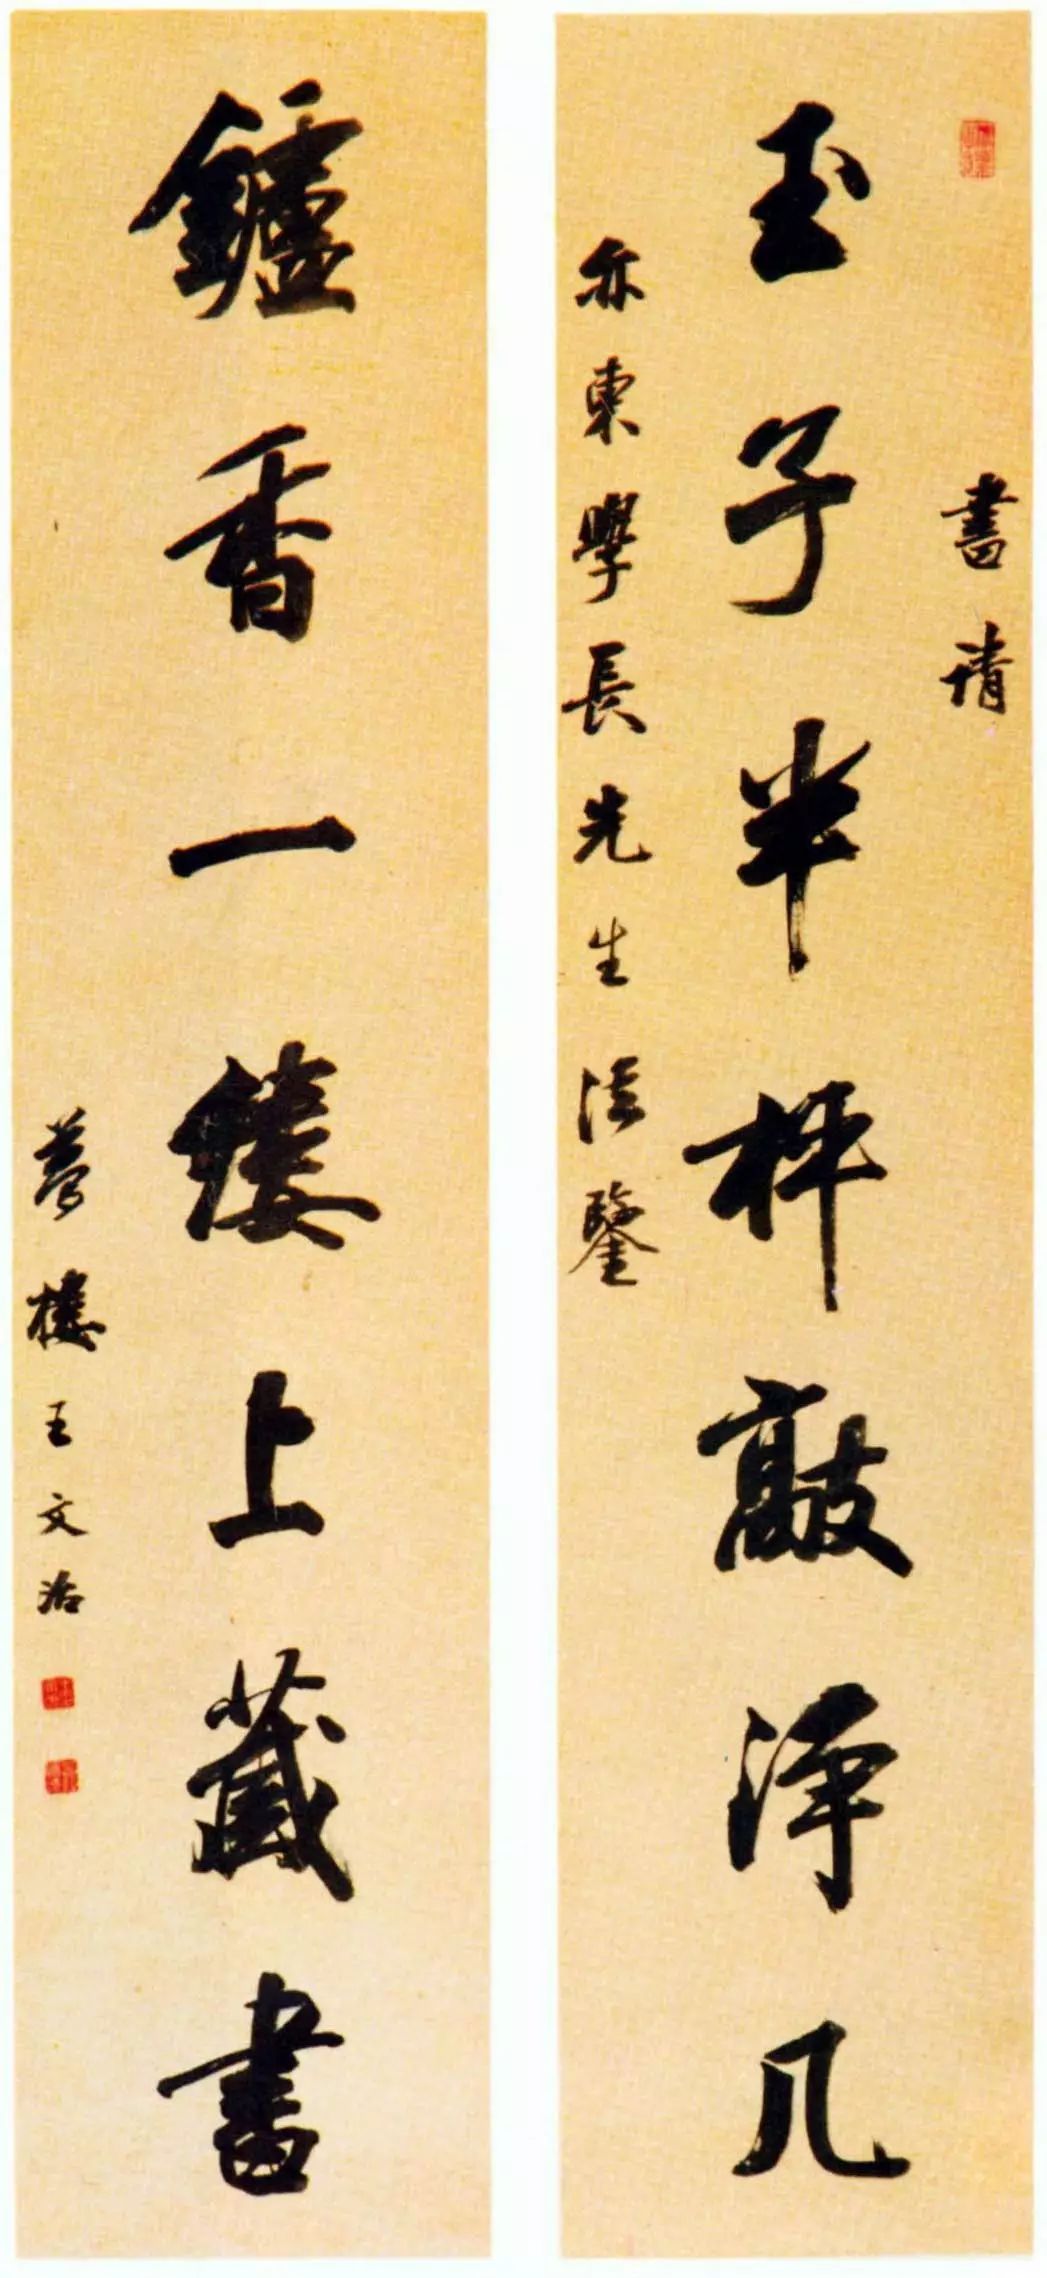 書請
玉子半枰敲淨几
亦東學長先生法鑒
鑪香一縷上藏書
夢樓王文治